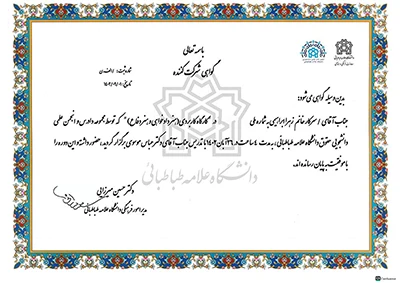 باسمه تعالی
گواهی شرکت کننده
بدین وسیله گواهی می شود:
جناب آقای / سرکار خانم زهرا ابراهیمی به شماره ملی در کارگاه کاربردی (هنر دادخواهی و هنر دفاع) که توسط مجموعه دادمان و انجمن علمی
دانشجویی حقوق دانشگاه علامه طباطبائی، به مدت ساعت در آبان ۱۴۰۲ با تدریس جناب آقای دکتر عباس موسوی برگزار گردید، حضور داشته و این دوره را
با موفقیت به پایان رسانده اند.
دانشگاه علامه طباطبائی
دکتر حسین میرزائی
مدیر امور فرهنگی دانشگاه علامه طباطبائی